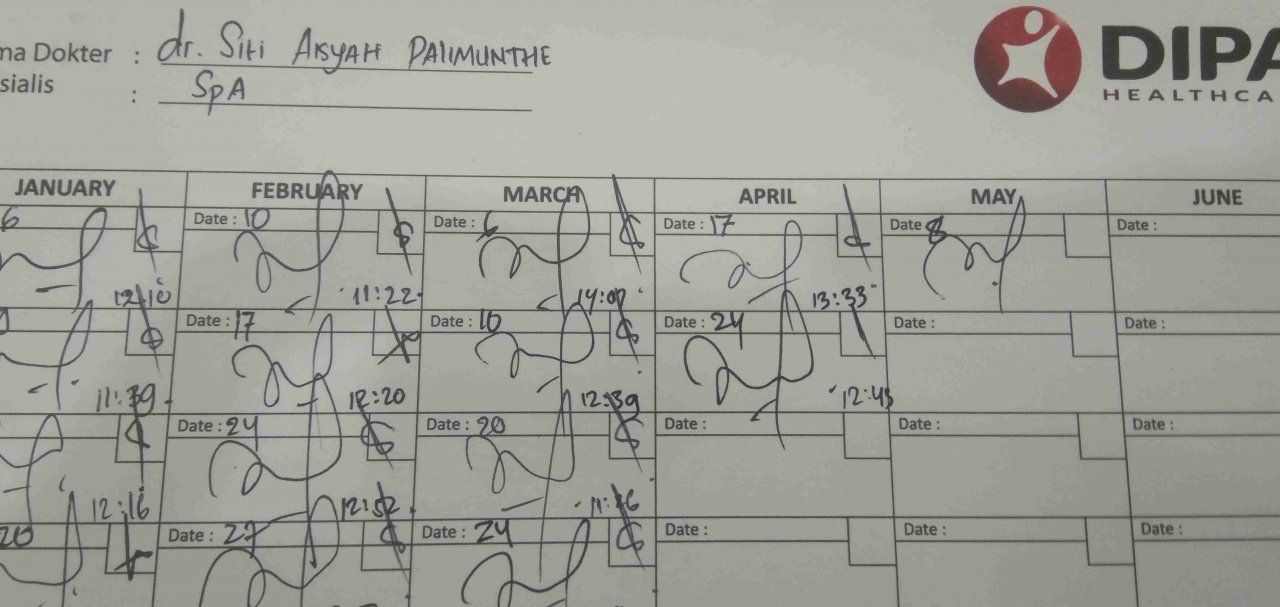 ma Dokter : dr. Siti Aisyah DALIMUNTHE
sialis : SpA
DIPA
HEALTHCA
JANUARY FEBRUARY MARCH APRIL MAY JUNE
6 Date : 10 Date : 6 Date : 17 Date 8 Date :
12:10 11:22 14:07 13:33
Date : 17 Date : 10 Date : 24 Date : Date :
11:39 12:20 12:39 12:43
Date : 24 Date : 20 Date : Date : Date :
12:16 12:52 11:46
20 Date : 27 Date : 24 Date : Date : Date :